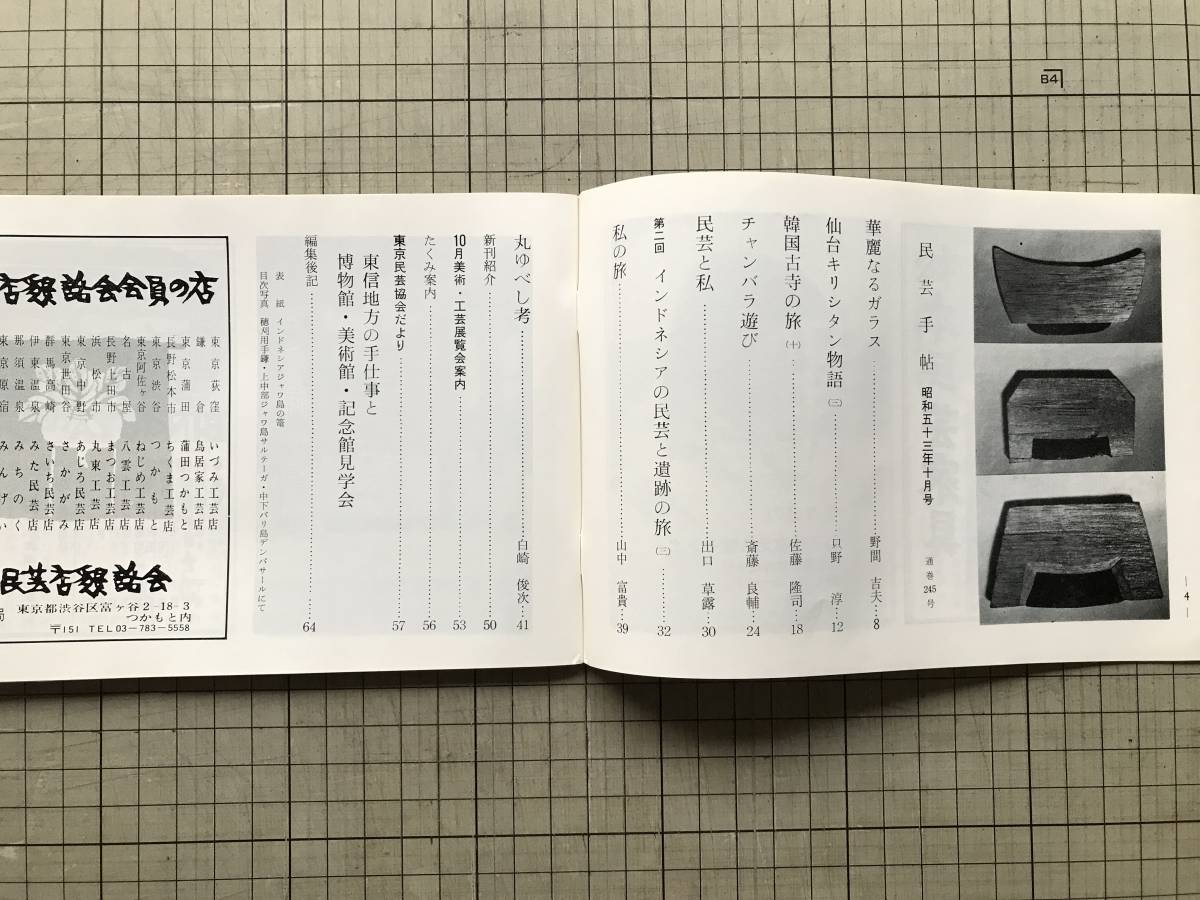 B4
—4—
民芸手帖 昭和五十三年十月号 通巻245号
華麗なるガラス…………野間 吉夫…8
仙台キリシタン物語 (三)…………只野 淳…12
韓国古寺の旅 (十)…………佐藤 隆司…18
チャンバラ遊び…………斎藤 良輔…24
民芸と私…………出口 草露…30
第二回 インドネシアの民芸と遺跡の旅 (三)…………32
私の旅…………山中 富貴…39
丸ゆべし考…………白崎 俊次…41
新刊紹介…………50
10月美術・工芸展覧会案内…………53
たくみ案内…………56
東京民芸協会だより…………57
東信地方の手仕事と
博物館・美術館・記念館見学会
編集後記…………64
表 紙 インドネシアジャワ島の篭
目次写真 穂刈用手鎌・上中部ジャワ島サルテーガ・中下バリ島デンパサールにて
店懇話会会員の店
東京荻窪 いづみ工芸店
鎌倉 鳥居家工芸店
東京蒲田 蒲田つかもと
長野松本市 ちくま工芸店
東京渋谷 つかもと
東京阿佐ヶ谷 ねじめ工芸店
名古屋 八雲工芸店
長野上田市 まつお工芸店
浜松市 丸東工芸店
東京中野 あじろ民芸店
東京世田谷 さかがみ
群馬高崎 さいち民芸店
伊東温泉 みたち民芸店
那須温泉 みちのく
東京原宿 みんげい
民芸店懇話会
局 東京都渋谷区富ヶ谷2-18-3
つかもと内
〒151 TEL03-783-5558